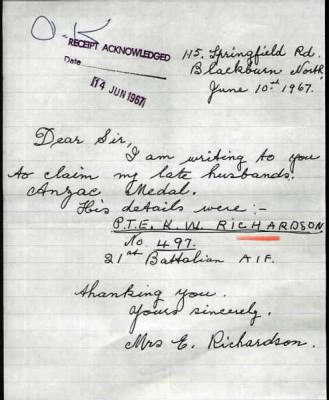 O-K
RECEIPT ACKNOWLEDGED
Date
14 JUN 1967
115. Springfield Rd.
Blackburn North
June 10th 1967.
Dear Sir,
I am writing to you
to claim my late husbands.
Anzac Medal.
His details were :-
P.T.E. K. W. RICHARDSON
No 497.
21st Battalian A.I.F.
thanking you.
Yours sincerely.
Mrs E. Richardson.